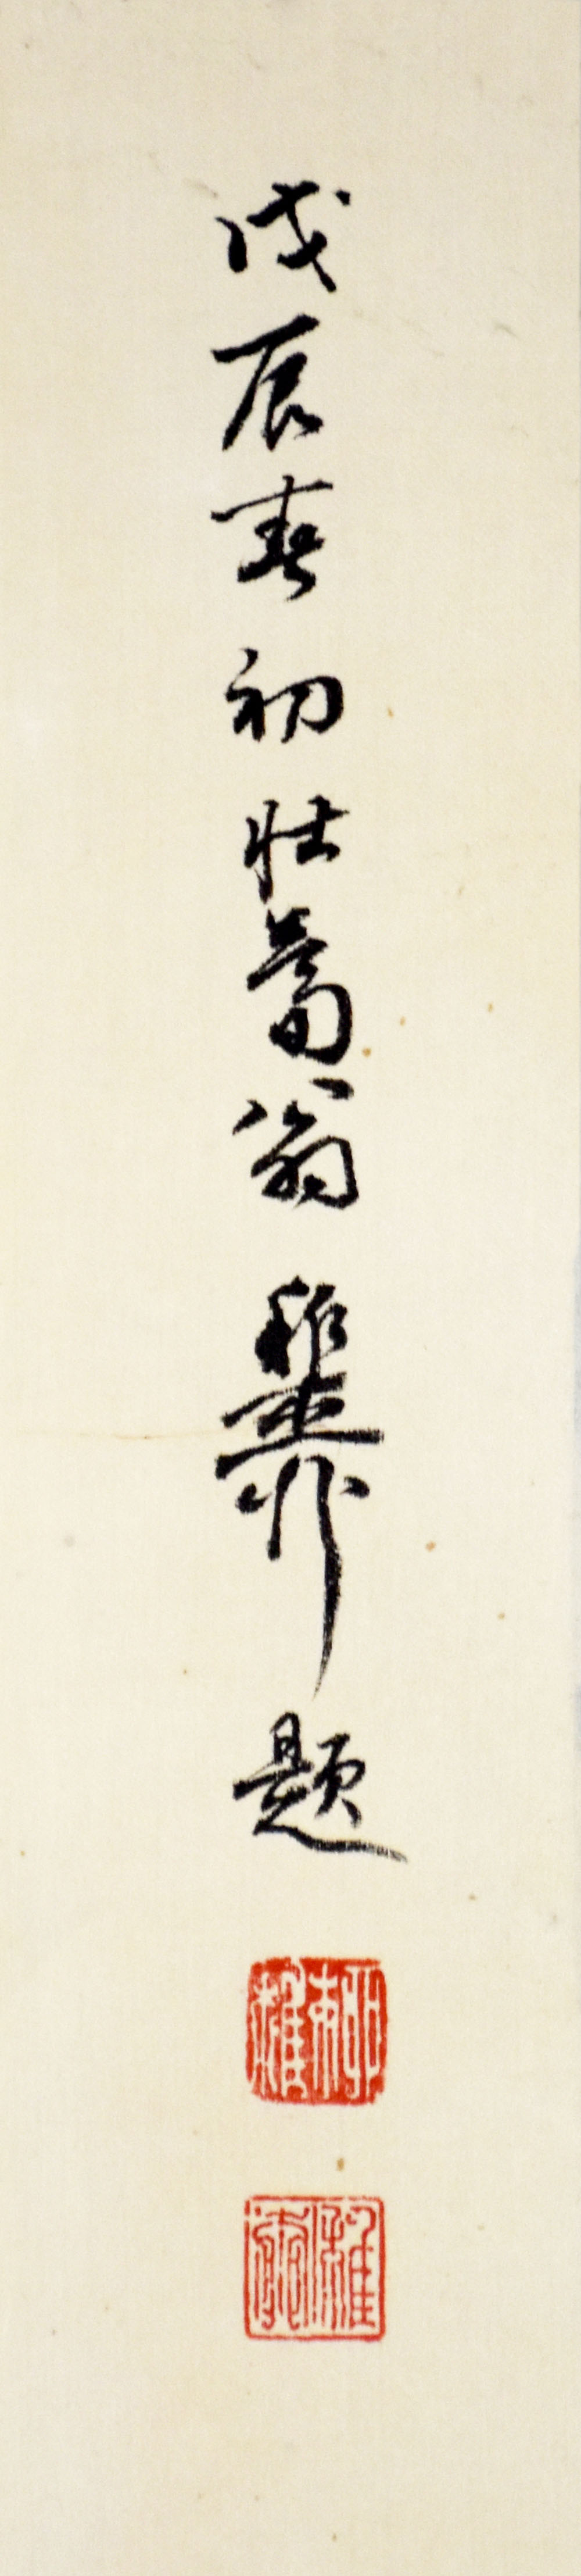 戊辰春初壯暮翁稚柳題